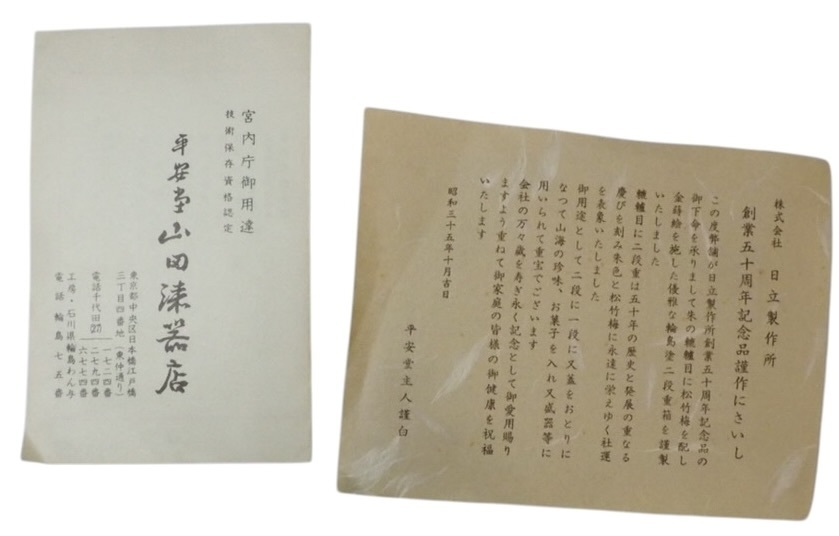 宮内庁御用達
技術保存資格認定
平安堂山田漆器店
東京都中央区日本橋江戸橋
三丁目四番地(東仲通り)
電話千代田(27)
一七二四番
二七九四番
六七七四番
工房・石川県輪島わん与
電話輪島七五番
株式会社 日立製作所
創業五十周年記念品謹作にさいし
この度弊舗が日立製作所創業五十周年記念品の
御下命を承りまして朱の轆轤目に松竹梅を配し
金蒔絵を施した優雅な輪島塗二段重箱を謹製
いたしました
轆轤目に二段重は五十年の歴史と発展の重なる
慶びを刻み朱色と松竹梅に永遠に栄えゆく社運
を表象いたしました
御用途として二段に一段に又蓋をおとりに
なつて山海の珍味、お菓子を入れ又盛器等に
用いられて重宝でございます
会社の万々歳を寿ぎ永く記念として御愛用賜り
ますよう重ねて御家庭の皆様の御健康を祝福
いたします
昭和三十五年十月吉日
平安堂主人謹白